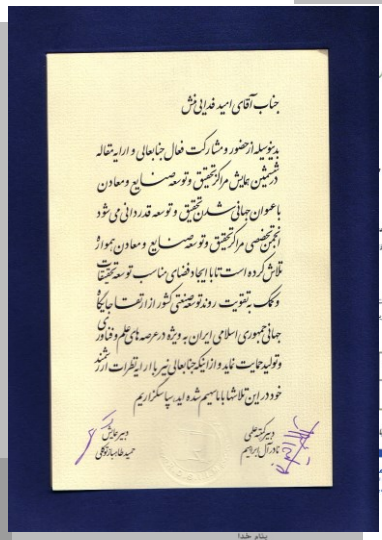 جناب آقای امید فدایی منش
بدینوسیله از حضور و مشارکت فعال جنابعالی و ارایه مقاله
در ششمین همایش مراکز تحقیق و توسعه صنایع و معادن
با عنوان جهانی شدن تحقیق و توسعه قدردانی می شود
انجمن تخصصی مراکز تحقیق و توسعه صنایع و معادن همواره
تلاش کرده است تا با ایجاد فضای مناسب توسعه تحقیقات
و کمک به تقویت روند توسعه صنعتی کشور از ارتقاء جایگاه
جهانی جمهوری اسلامی ایران به ویژه در عرصه های علم و فناوری
و تولید حمایت نماید و از اینکه جنابعالی نیز با ارایه نظرات ارزشمند
خود در این تلاشها با ما سهیم شده اید، سپاسگزاریم
دبیر کمیته علمی
نادر آل ابراهیم
دبیر همایش
حمید طاهباز توکلی
بنام خدا